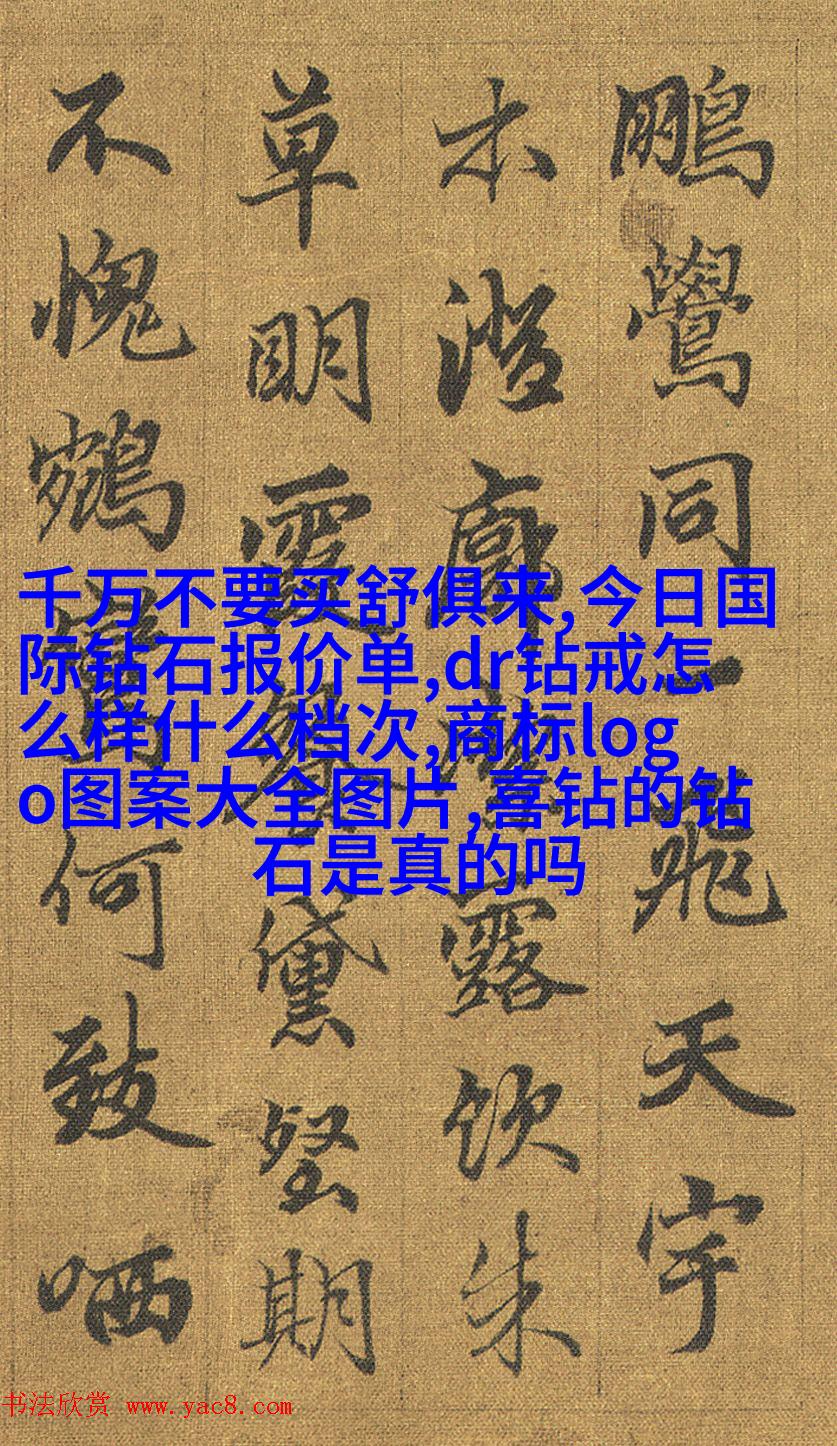 鵬鷽同一飛天宇
澄露饮朱
草明霞黛堅期
不愧鶴何致哂
千万不要买舒俱来,今日国
际钻石报价单,dr钻戒怎
么样什么档次,商标log
o图案大全图片,喜钻的钻
石是真的吗
书法欣赏 www.yac8.com